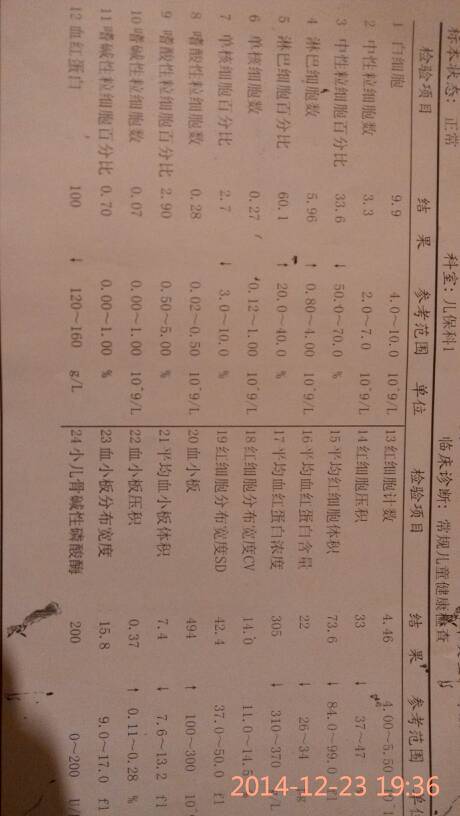 标本状态: 正常 科室: 儿保科1 临床诊断: 常规儿童健康检查
检验项目 结 果 参考范围 单位 检验项目 结 果 参考范围 单位
1 白细胞 9.9 4.0~10.0 10^9/L 13 红细胞计数 4.46 4.00~5.50
2 中性粒细胞数 3.3 2.0~7.0 10^9/L 14 红细胞压积 33 ↓ 37~47
3 中性粒细胞百分比 33.6 ↓ 50.0~70.0 % 15 平均红细胞体积 73.6 ↓ 84.0~99.0 fl
4 淋巴细胞数 5.96 ↑ 0.80~4.00 10^9/L 16 平均血红蛋白含量 22 ↓ 26~34
5 淋巴细胞百分比 60.1 ↑ 20.0~40.0 % 17 平均血红蛋白浓度 305 ↓ 310~370
6 单核细胞数 0.27 0.12~1.00 10^9/L 18 红细胞分布宽度CV 14.0 11.0~14.5
7 单核细胞百分比 2.7 ↓ 3.0~10.0 % 19 红细胞分布宽度SD 42.4 37.0~50.0 fl
8 嗜酸性粒细胞数 0.28 0.02~0.50 10^9/L 20 血小板 494 ↑ 100~300
9 嗜酸性粒细胞百分比 2.90 0.50~5.00 % 21 平均血小板体积 7.4 ↓ 7.6~13.2 fl
10 嗜碱性粒细胞数 0.07 0.00~1.00 10^9/L 22 血小板压积 0.37 ↑ 0.11~0.28 %
11 嗜碱性粒细胞百分比 0.70 0.00~1.00 % 23 血小板分布宽度 15.8 9.0~17.0 fl
12 血红蛋白 100 ↓ 120~160 g/L 24 小儿骨碱性磷酸酶 200 0~200
2014-12-23 19:36